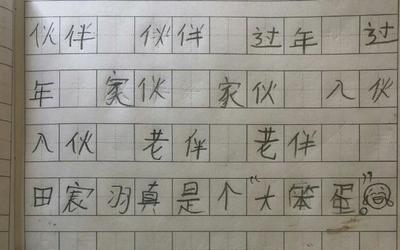 伙伴 伙伴 过年 过
年 家伙 家伙 入伙
入伙 老伴 老伴
田宸羽真是个"大笨蛋"